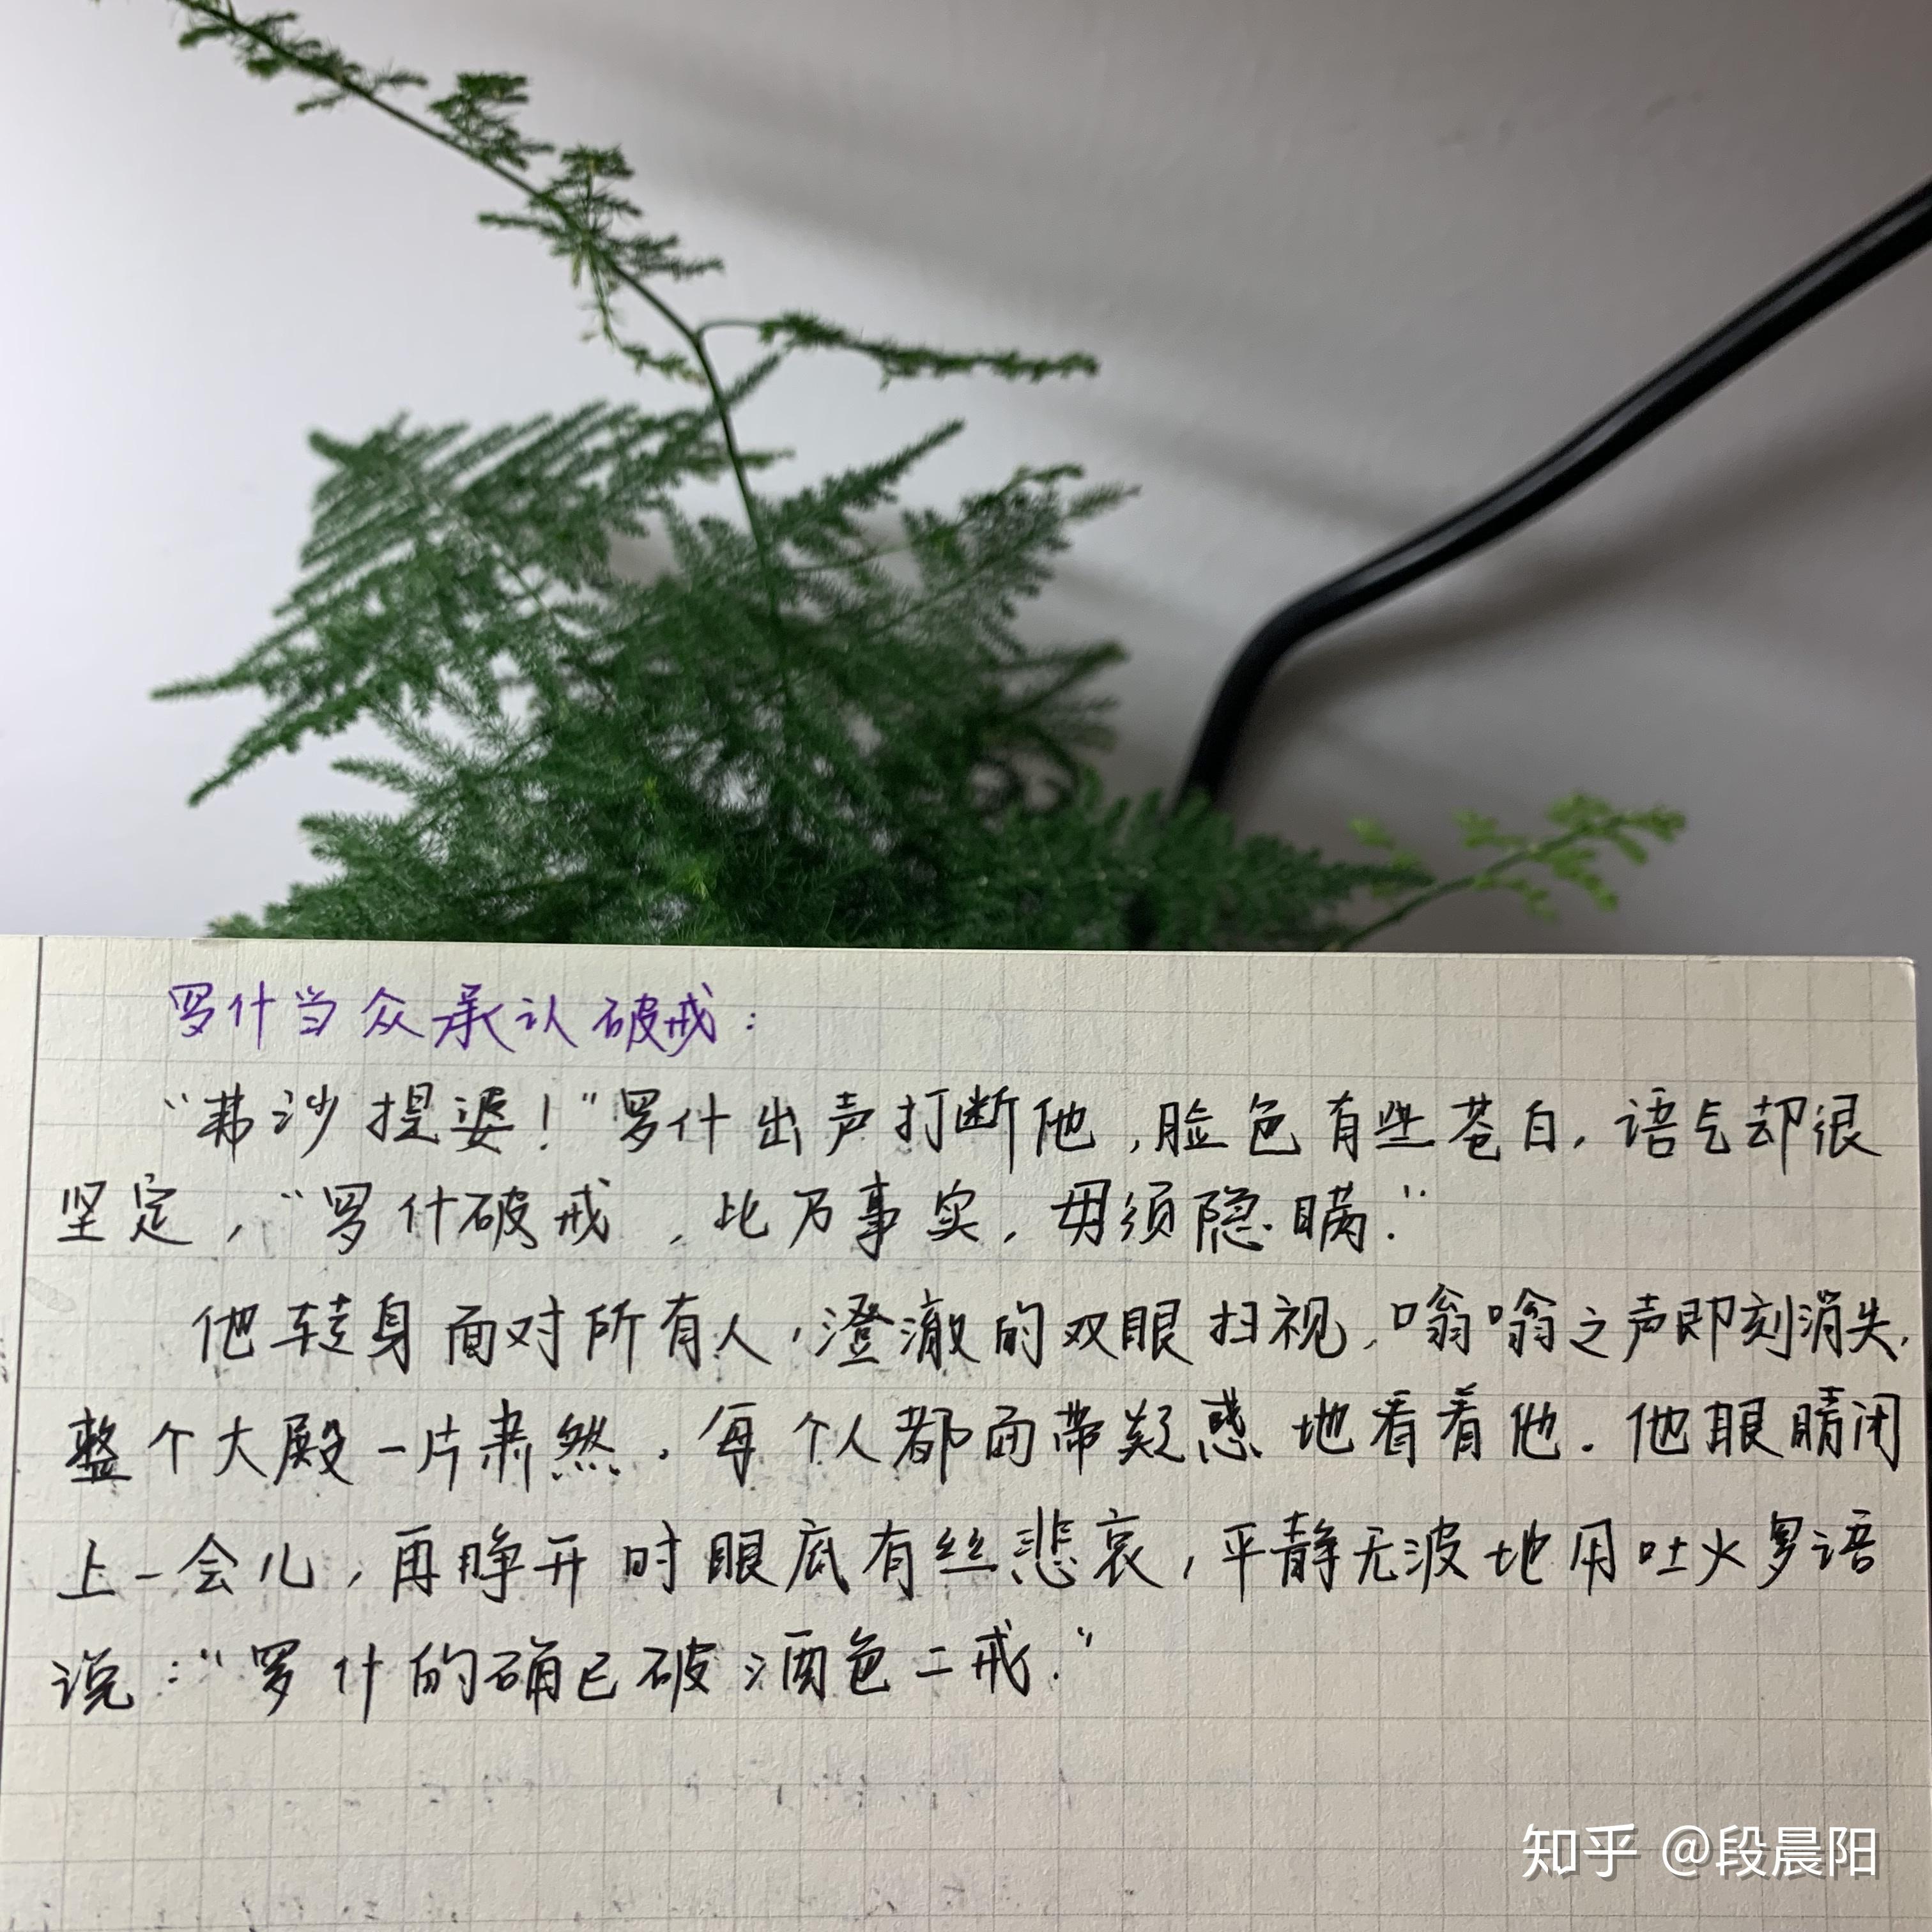 罗什当众承认破戒：
“弗沙提婆！”罗什出声打断他，脸色有些苍白，语气却很
坚定，“罗什破戒，此乃事实，毋须隐瞒.”
他转身面对所有人，澄澈的双眼扫视，嗡嗡之声即刻消失，
整个大殿一片肃然，每个人都面带疑惑地看着他.他眼睛闭
上一会儿，再睁开时眼底有丝悲哀，平静无波地用吐火罗语
说：“罗什的确已破酒色二戒.”
知乎 @段晨阳